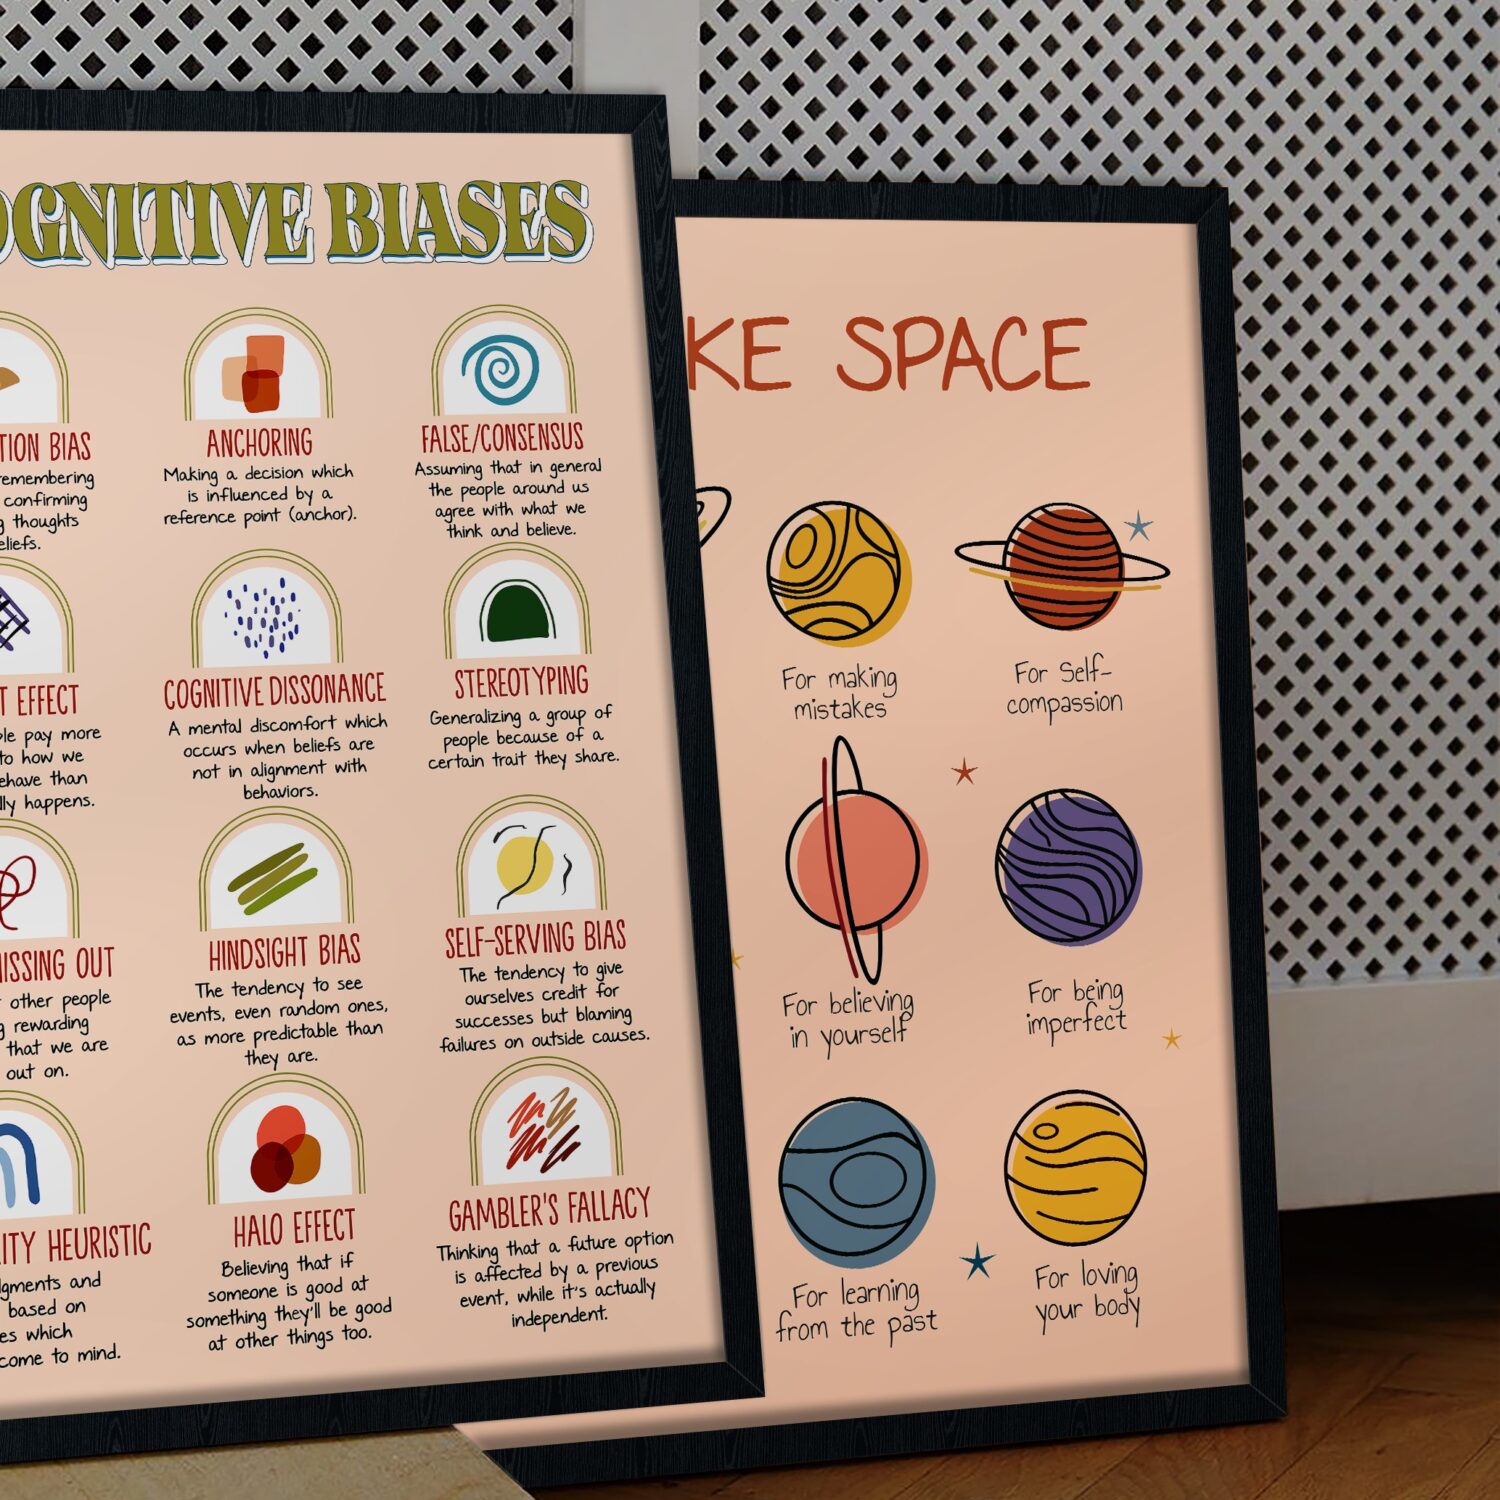 COGNITIVE BIASES
ANCHORING
Making a decision which
is influenced by a
reference point (anchor).
FALSE/CONSENSUS
Assuming that in general
the people around us
agree with what we
think and believe.
TION BIAS
remembering
confirming
g thoughts
eliefs.
COGNITIVE DISSONANCE
A mental discomfort which
occurs when beliefs are
not in alignment with
behaviors.
STEREOTYPING
Generalizing a group of
people because of a
certain trait they share.
T EFFECT
ple pay more
to how we
ehave than
lly happens.
HINDSIGHT BIAS
The tendency to see
events, even random ones,
as more predictable than
they are.
SELF-SERVING BIAS
The tendency to give
ourselves credit for
successes but blaming
failures on outside causes.
ISSING OUT
other people
g rewarding
that we are
out on.
HALO EFFECT
Believing that if
someone is good at
something they'll be good
at other things too.
GAMBLER'S FALLACY
Thinking that a future option
is affected by a previous
event, while it's actually
independent.
ITY HEURISTIC
dgments and
based on
es which
come to mind.
KE SPACE
For making
mistakes
For Self-
compassion
For believing
in yourself
For being
imperfect
For learning
from the past
For loving
your body